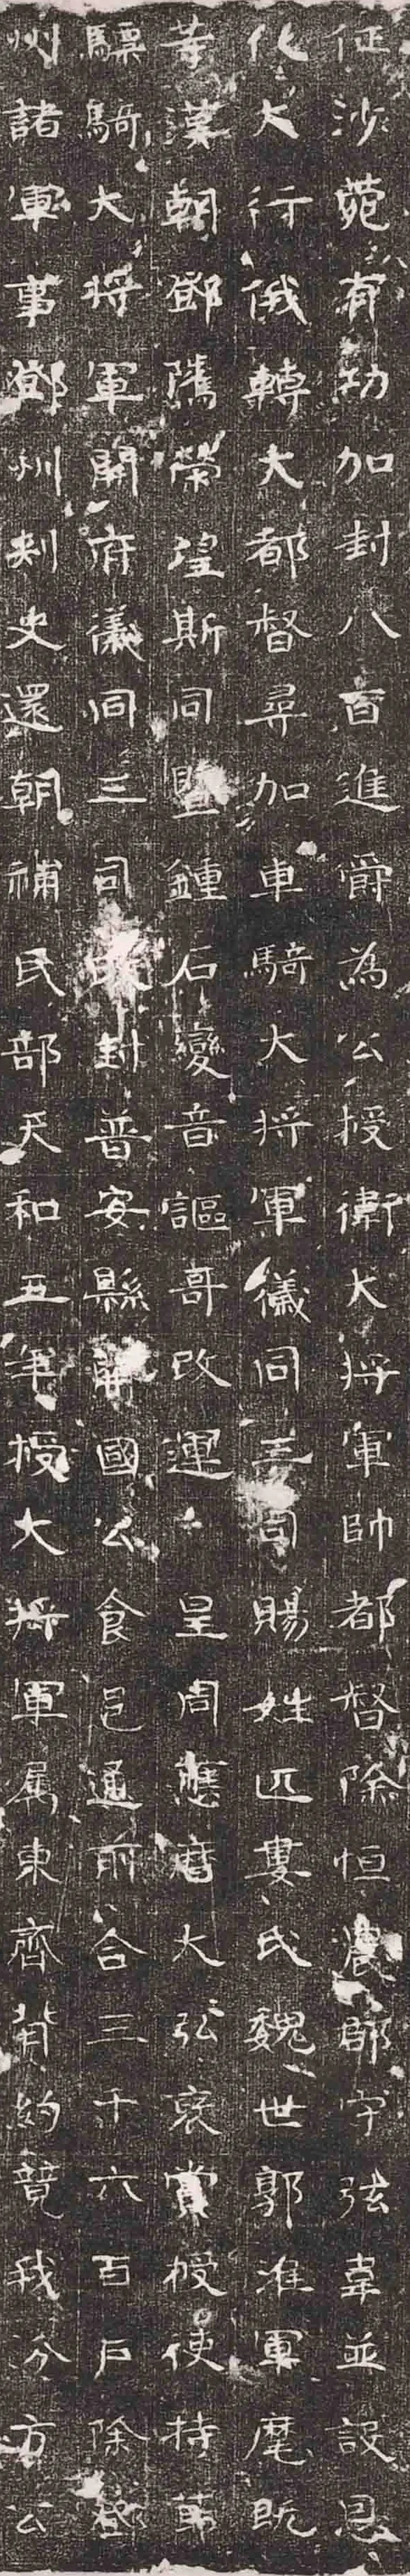 征沙苑有功加封八百進爵為公授衛大將軍帥都督除恒農郡守弦韋並設恩
化大行俄轉大都督尋加車騎大將軍儀同三司賜姓匹婁氏魏世郭淮軍麾既
等漢朝鄧騭榮望斯同暨鍾石變音謳哥改運皇周應曆大弘裒賞授使持節
驃騎大將軍開府儀同三司改封普安縣開國公食邑通前合三千六百戶除鄧
州諸軍事鄧州刺史還朝補民部天和五年授大將軍属東齊背約競我汾方公